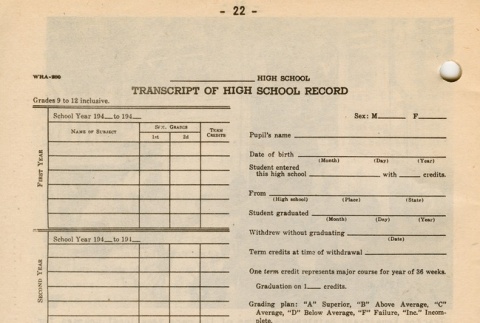 - 22 -
WRA-200
HIGH SCHOOL
TRANSCRIPT OF HIGH SCHOOL RECORD
Grades 9 to 12 inclusive.
School Year 194__ to 194__
NAME OF SUBJECT
SEM. GRADES
1st
2d
TERM CREDITS
FIRST YEAR
School Year 194__ to 194__
SECOND YEAR
Sex: M____ F____
Pupil's name
Date of birth
(Month) (Day) (Year)
Student entered
this high school ____ with ____ credits.
From
(High school) (Place) (State)
Student graduated
(Month) (Day) (Year)
Withdrew without graduating
(Date)
Term credits at time of withdrawal
One term credit represents major course for year of 36 weeks.
Graduation on 1____ credits.
Grading plan: "A" Superior, "B" Above Average, "C"
Average, "D" Below Average, "F" Failure, "Inc." Incom-
plete.